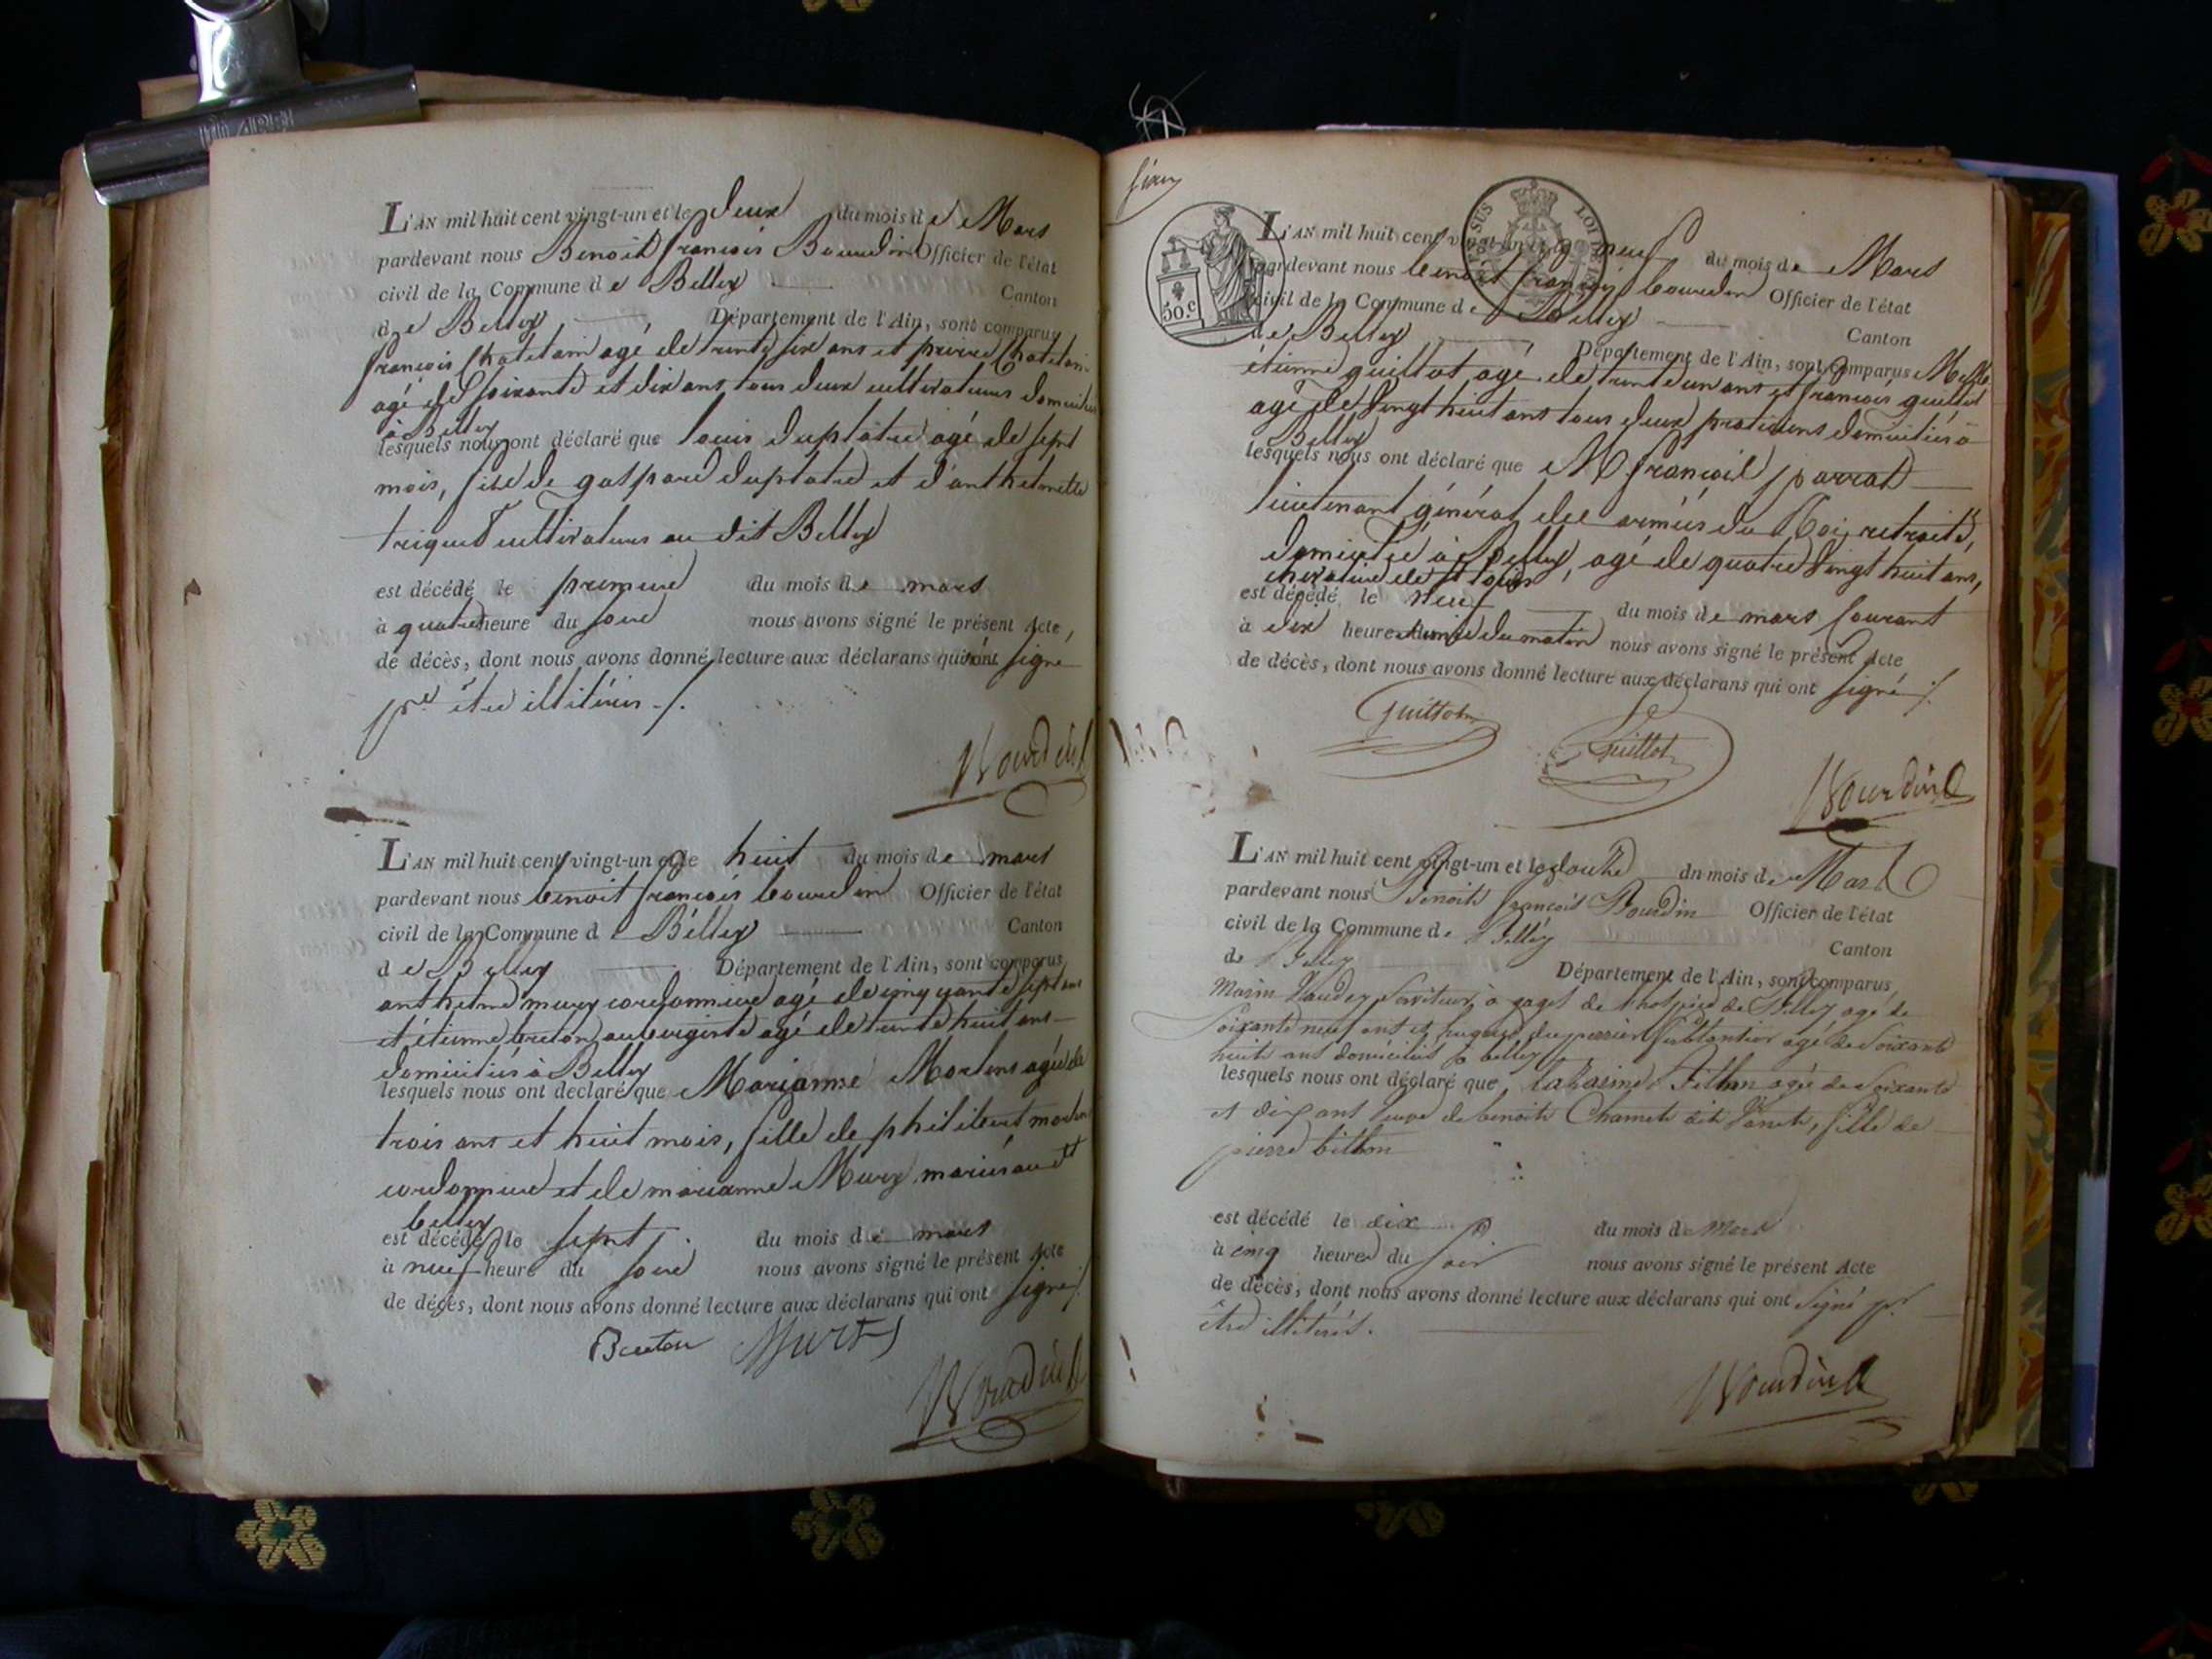 L'AN mil huit cent vingt-un et le deux du mois de Mars
pardevant nous Benoit françois Bourdin Officier de l'état
civil de la Commune de Belley Canton
de Belley Département de l'Ain, sont comparus
françois Chatelain agé de trente six ans et pierre Chatelain
agé de soixante et dix ans tous deux cultivateurs domiciliés
à Belley
lesquels nous ont déclaré que louis duplatre agé de sept
mois, fils de gaspard duplatre et d'anthelmette
triquet cultivateurs au dit Belley
est décédé le premier du mois de mars
à quatre heure du soir nous avons signé le présent Acte,
de décès, dont nous avons donné lecture aux déclarans qui n'ont signé
pr être illitérés ./.
Bourdin
L'AN mil huit cent vingt-un et le huit du mois de mars
pardevant nous benoit françois bourdin Officier de l'état
civil de la Commune de Belley Canton
de Belley Département de l'Ain, sont comparus
anthelme mury cordonnier agé de cinquante sept ans
et étienne breton aubergiste agé de trente huit ans
domiciliés à Belley
lesquels nous ont declaré que Marianne Martin agée de
trois ans et huit mois, fille de philibert martin
cordonnier et de marianne Mury mariés au dt
belley
est décédé le sept du mois de mars
à neuf heure du soir nous avons signé le présent Acte
de décès, dont nous avons donné lecture aux déclarans qui ont signé ./.
Breton Mury
Bourdin
50.c
LOI DE 18
L'AN mil huit cent vingt-un et le neuf du mois de Mars
pardevant nous benoit françois bourdin Officier de l'état
civil de la Commune de Belley
de Belley Canton
Département de l'Ain, sont comparus
étienne guillot agé de trente un ans et françois guillot
agé de vingt huit ans tous deux praticiens domiciliés à
Belley
lesquels nous ont déclaré que M. françois parrat
lieutenant général des armées du Roi, retraité,
domicilié à Belley, agé de quatre vingt huit ans,
chevalier de st louis
est décédé le neuf du mois de mars courant
à dix heures demie du matin nous avons signé le présent Acte
de décès, dont nous avons donné lecture aux déclarans qui ont signé ./.
Guillot
Guillot
Bourdin
L'AN mil huit cent vingt-un et le douze du mois de Mars
pardevant nous Benoit françois Bourdin Officier de l'état
civil de la Commune de Belley
de Belley Canton
Département de l'Ain, sont comparus
Marin serviteur à gages de l'hospice de Belley agé de
soixante neuf ans et agé de soixante
huit ans domiciliés à belley
lesquels nous ont déclaré que agée de soixante
et dix ans veuve de benoit fille de
pierre billion
est décédé le dix du mois de Mars
à cinq heures du soir nous avons signé le présent Acte
de décès, dont nous avons donné lecture aux déclarans qui ont signé pr
être illitérés.
Bourdin